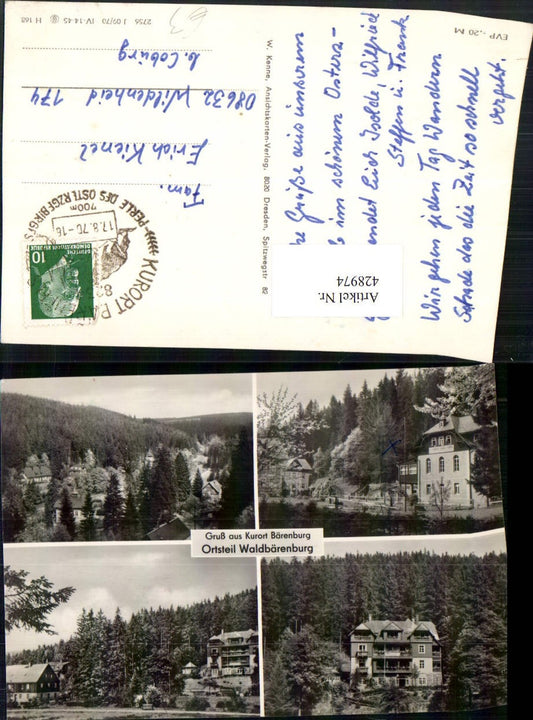 EVP -.20 M
Grüße aus unserem
im schönen Osterz-
endet Euch Isolde, Wilfried
Steffen u. Frank
Wir gehen jeden Tag Wandern
Schade das die Zeit so schnell
vergeht.
Artikel Nr.
428974
W. Kenne, Ansichtskarten-Verlag, 8020 Dresden, Spitzwegstr. 82
KURORT
PERLE DES OSTERZGEBIRGES
700m
17.8.70-16
DEUTSCHE
DEMOKRATISCHE REPUBLIK
10
Fam.
Erich Kienel
08632 Wildenheid 174
b. Coburg
2756 J 09/70 IV-14-45 H 168
63
Gruß aus Kurort Bärenburg
Ortsteil Waldbärenburg